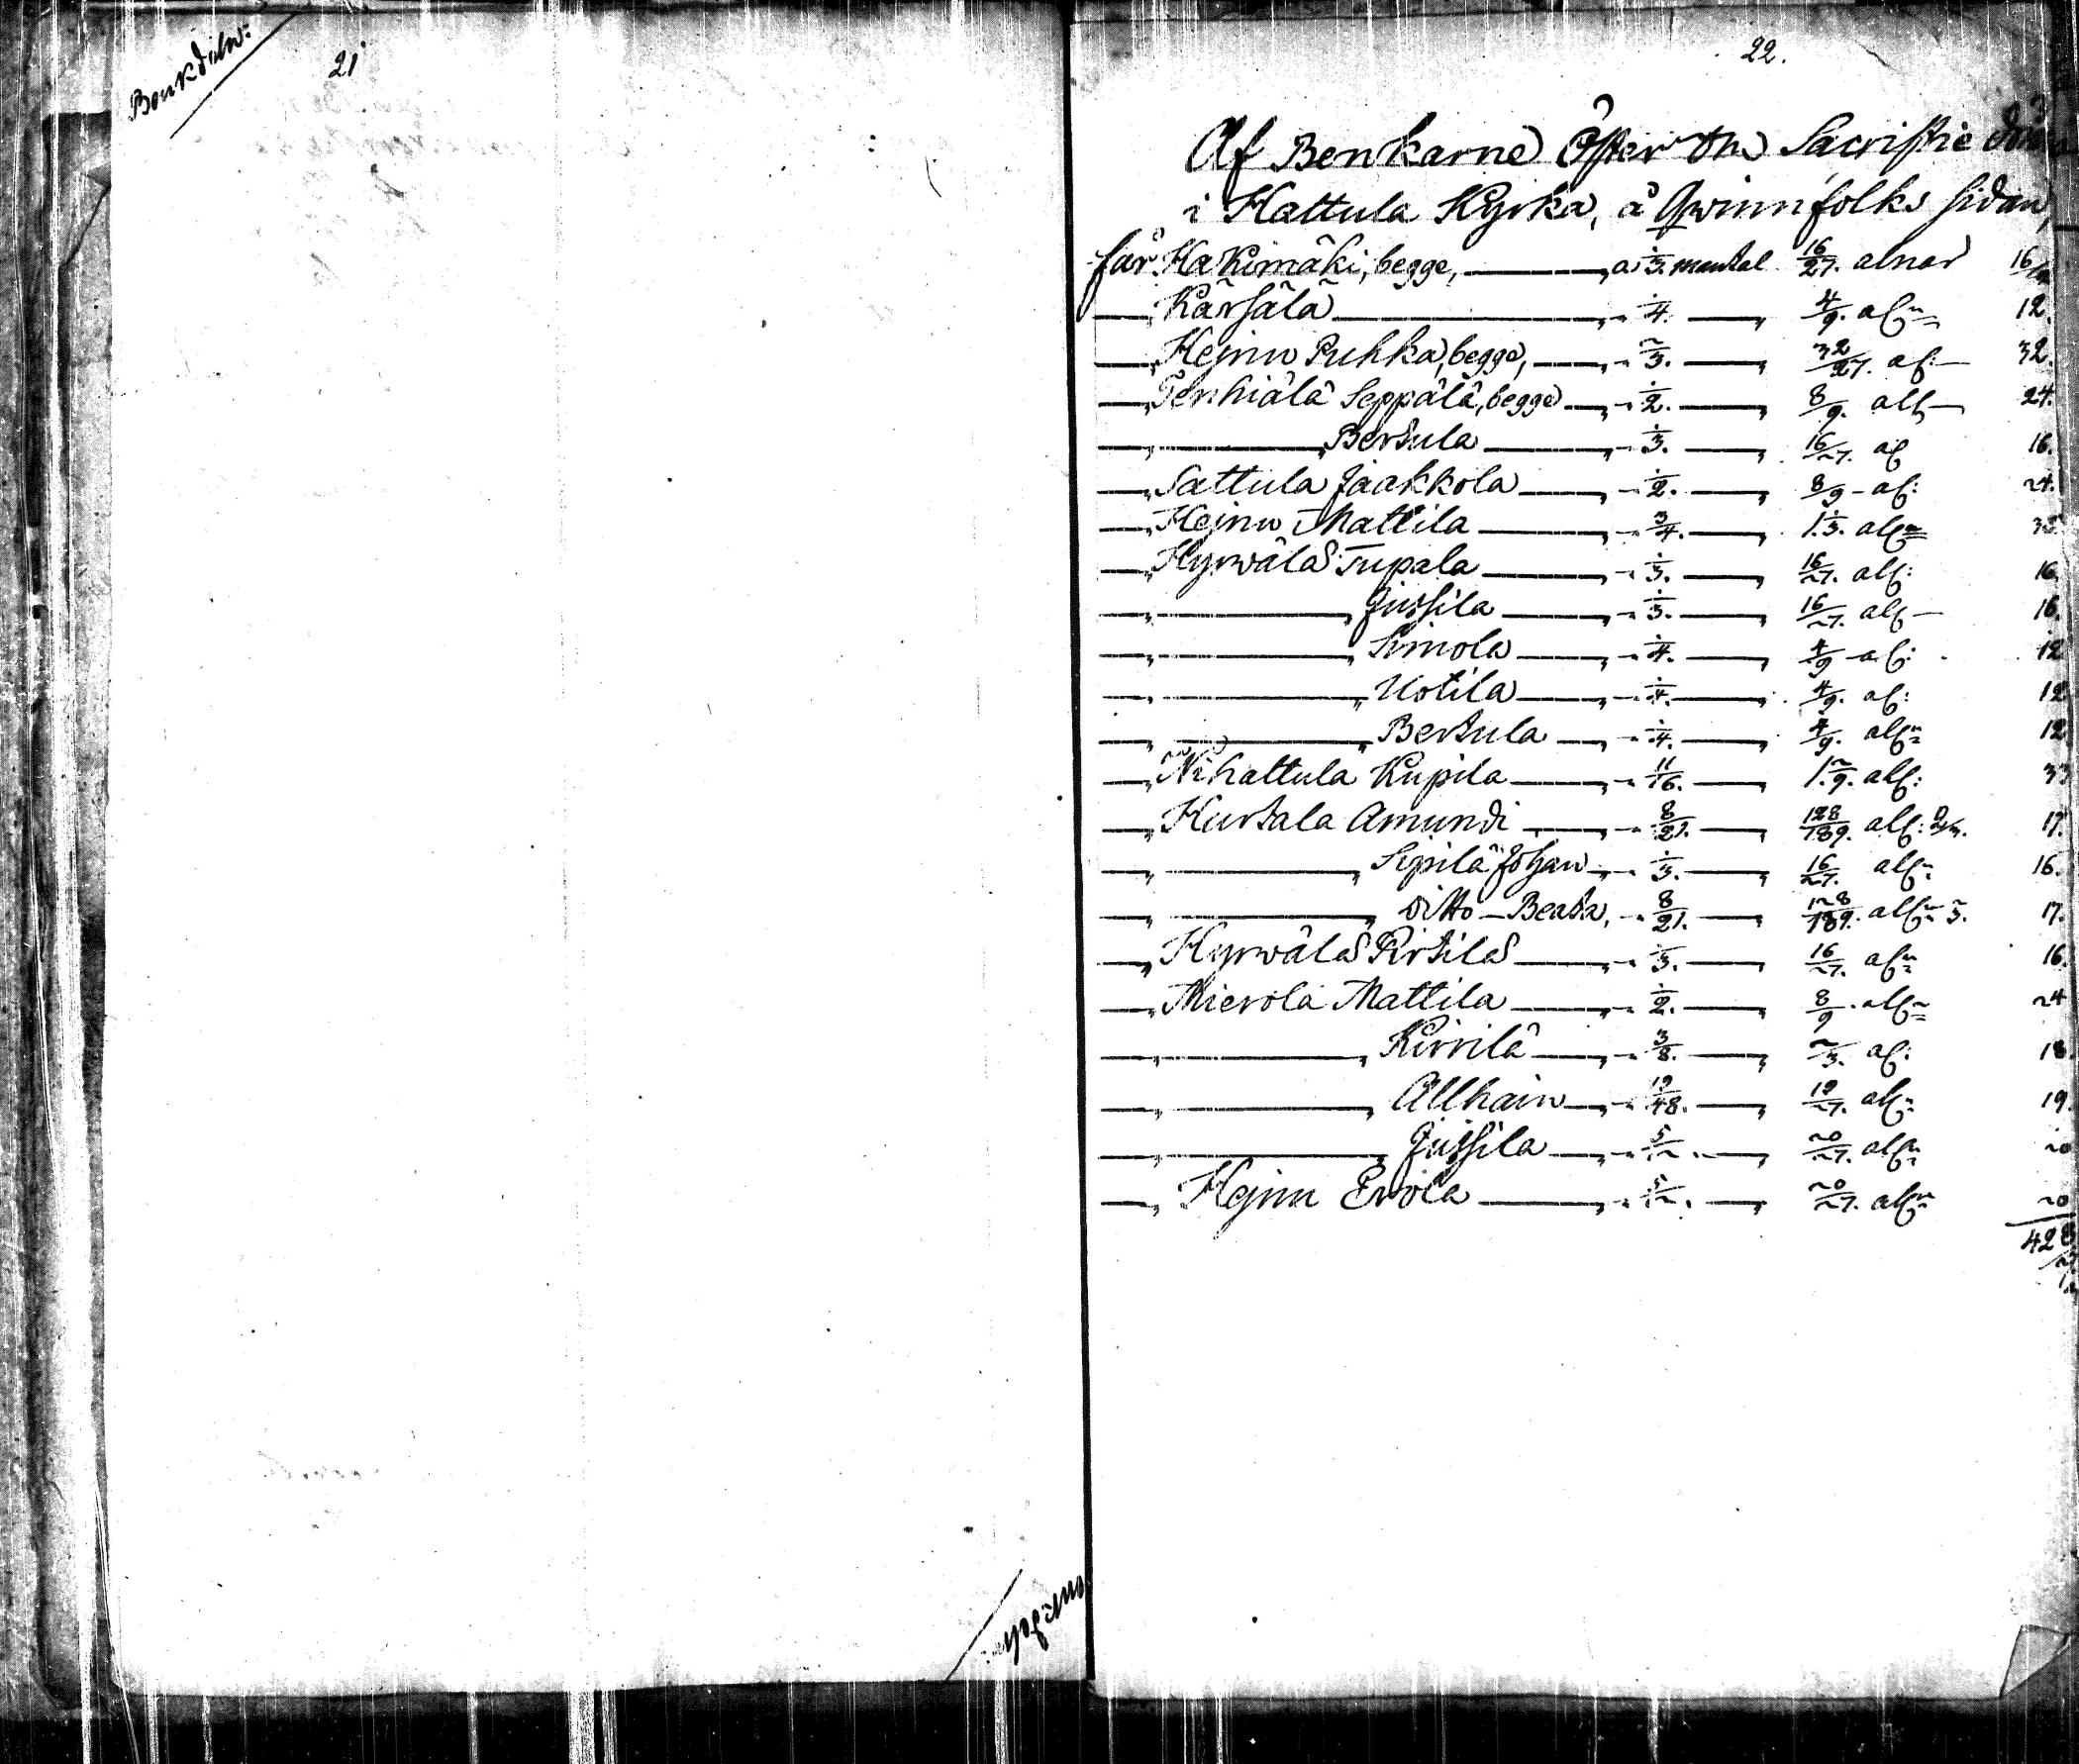 21
22.
Af Benkarne Öfter om Sacristie
i Hattula Kyrka, å Qwinnfolks sidan,
får Hakimäki, begge, a 1/3. mantal 16/27. alnar 16
— Kärsälä — 1/4. — 4/9. al: 12.
— Hejnu Puhka, begge, — 2/3. — 32/27. al: 32.
— Tenhiälä Seppälä, begge — 1/2. — 8/9. all 24.
— — Bertula — 1/3. — 16/27. al 16.
— Sattula Jaakkola — 1/2. — 8/9 al: 24.
— Hejnu Mattila — 3/4. — 1.1/3. all:
— Hyrwälä Tupala — 1/3. — 16/27. all: 16.
— — Jussila — 1/3. — 16/27. all — 16.
— — Simola — 1/4. — 4/9 al: 12
— — Uotila — 1/4. — 4/9. al: 12
— — Bertula — 1/4. — 4/9. all: 12
— Nihattula Kupila — 11/16. — 1.2/9. all: 33
— Hurtala Amundi — 8/21. — 128/189. all: 17.
— — Sipilä Johan — 1/3. — 16/27. all: 16.
— — Ditto — Beata, — 8/21. — 128/189. all: 17.
— Hyrwälä Pirtilä — 1/3. — 16/27. al: 16.
— Mierola Mattila — 1/2. — 8/9. all: 24
— — Kirrilä — 3/8. — 2/3. al: 18.
— — Allhain — 19/48. — 19/27. all: 19.
— — Jussila — 5/12. — 20/27. all: 20
— Hejnu Erola — 5/12. — 20/27. all: 20
428